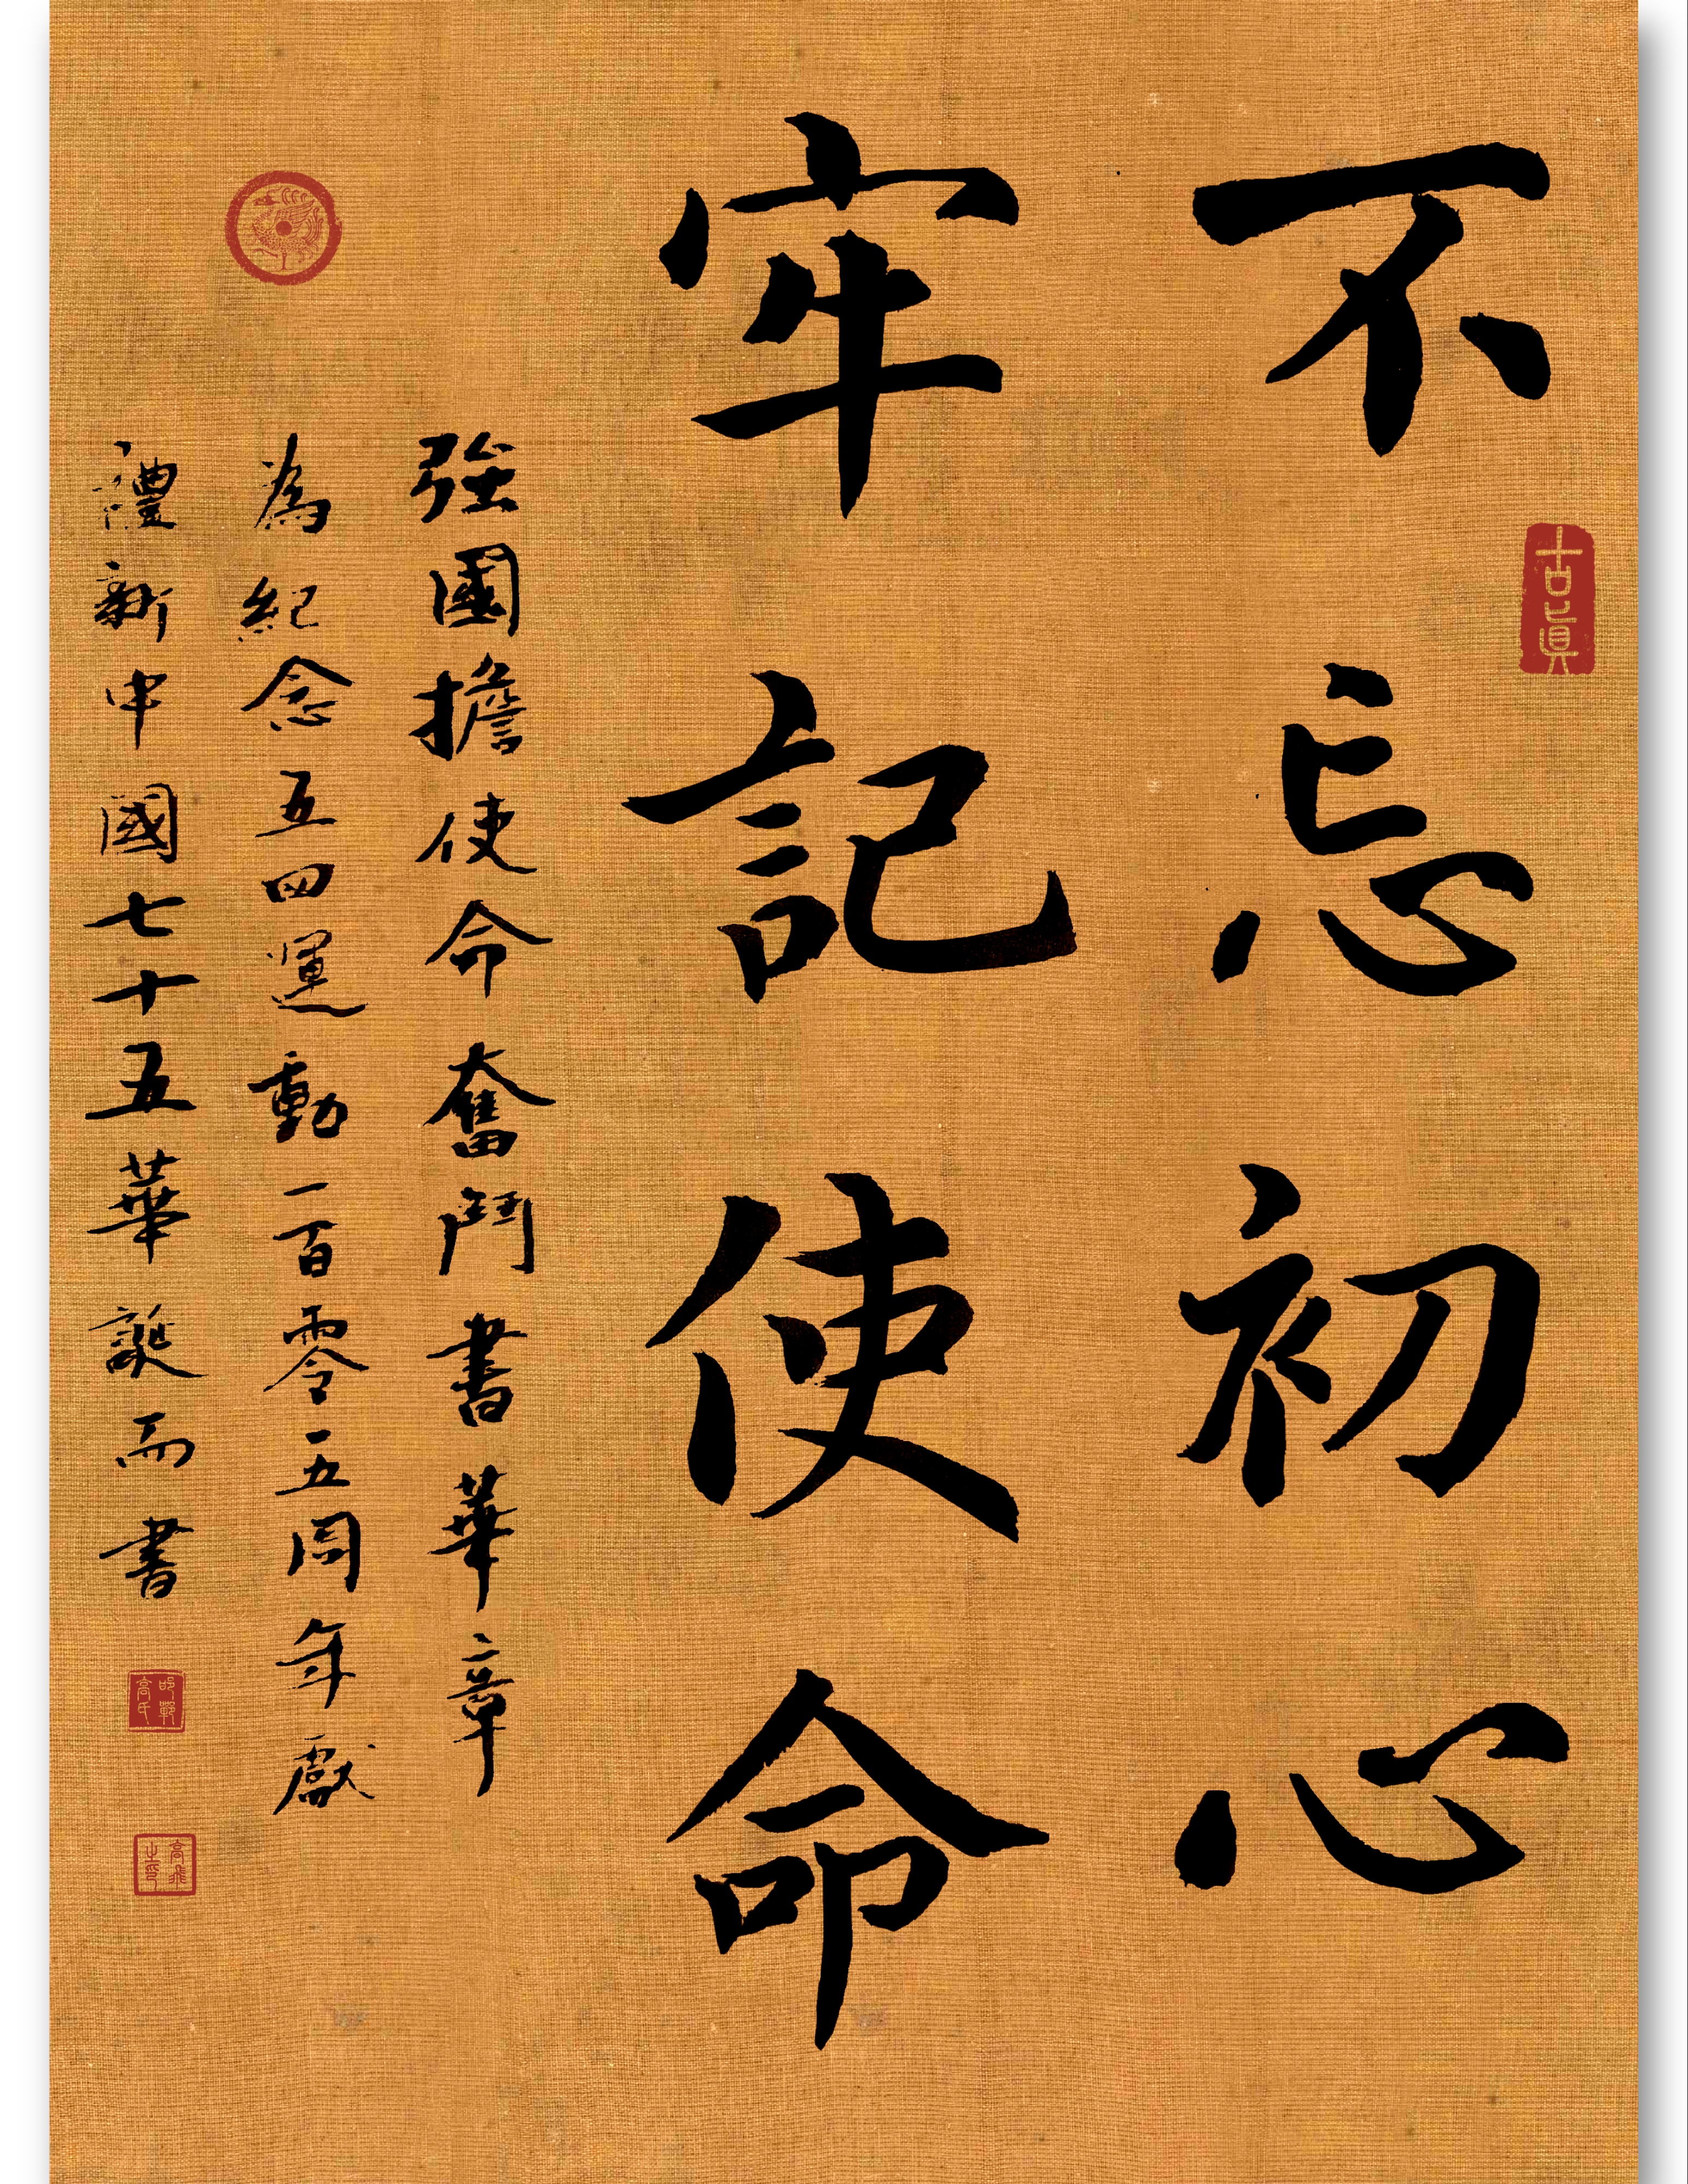 不忘初心
牢記使命
強國擔使命奮鬥書華章
為紀念五四運動一百零五周年獻
禮新中國七十五華誕而書
古真
高飛之印